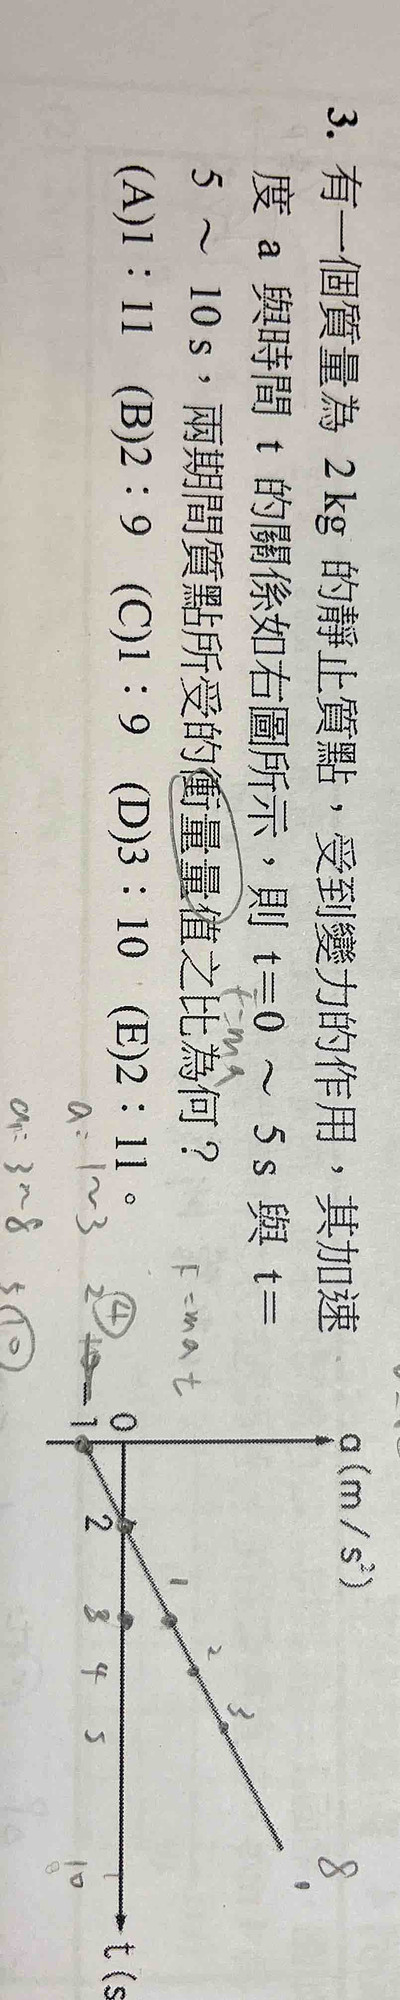 3. 有一個質量為 2 kg 的靜止質點，受到變力的作用，其加速
度 a 與時間 t 的關係如右圖所示，則 t=0 ～ 5 s 與 t=
5 ～ 10 s，兩期間質點所受的衝量量值之比為何？
(A)1：11 (B)2：9 (C)1：9 (D)3：10 (E)2：11。
F=ma
F=mat
a=1~3 2 ④
a=3~8 5 10
a(m/s²)
0
-1
2 3 4 5 10
1 2 3 8
t(s